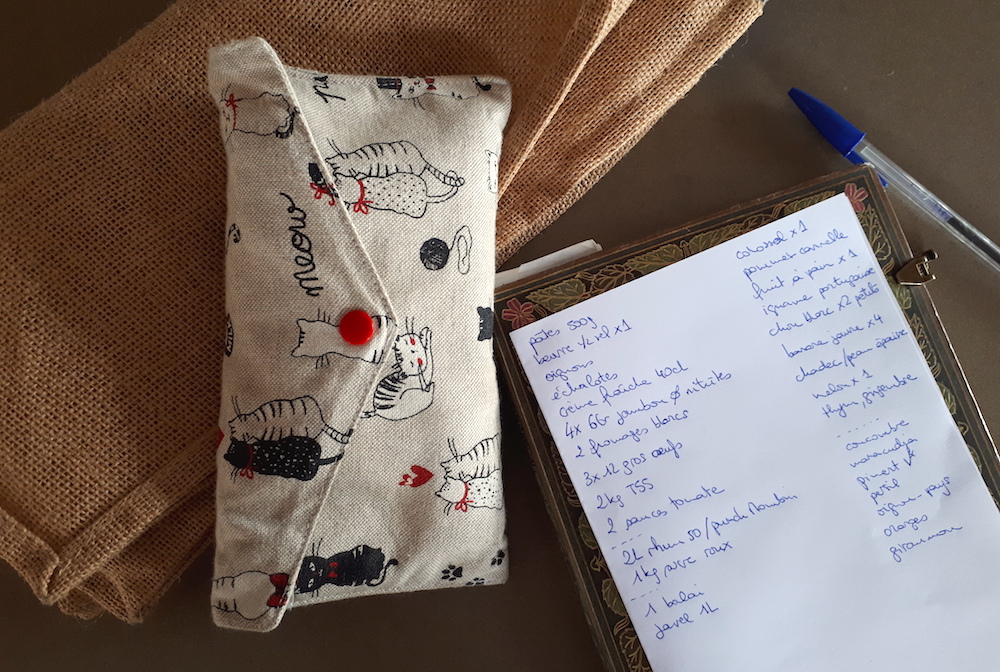 meow
pâtes 500g
beurre 1/2 sel x1
oignons
échalotes
crème fraîche 40cl
4x 6tr jambon Ø nitrites
2 fromages blancs
3x12 gros œufs
2kg TSS
2 sauces tomate
----
2L rhum 50/punch Mambou
1kg sucre roux
----
1 balai
Javel 1L
colossol x1
pommes cannelle
fruit à pain x1
igname portugaise
chou blanc x2 petits
banane jaune x4
chadec/peau épaisse
melon x1
thym, gingembre
-----
concombre
maracudja
piment
persil
oignon-pays
oranges
giraumon